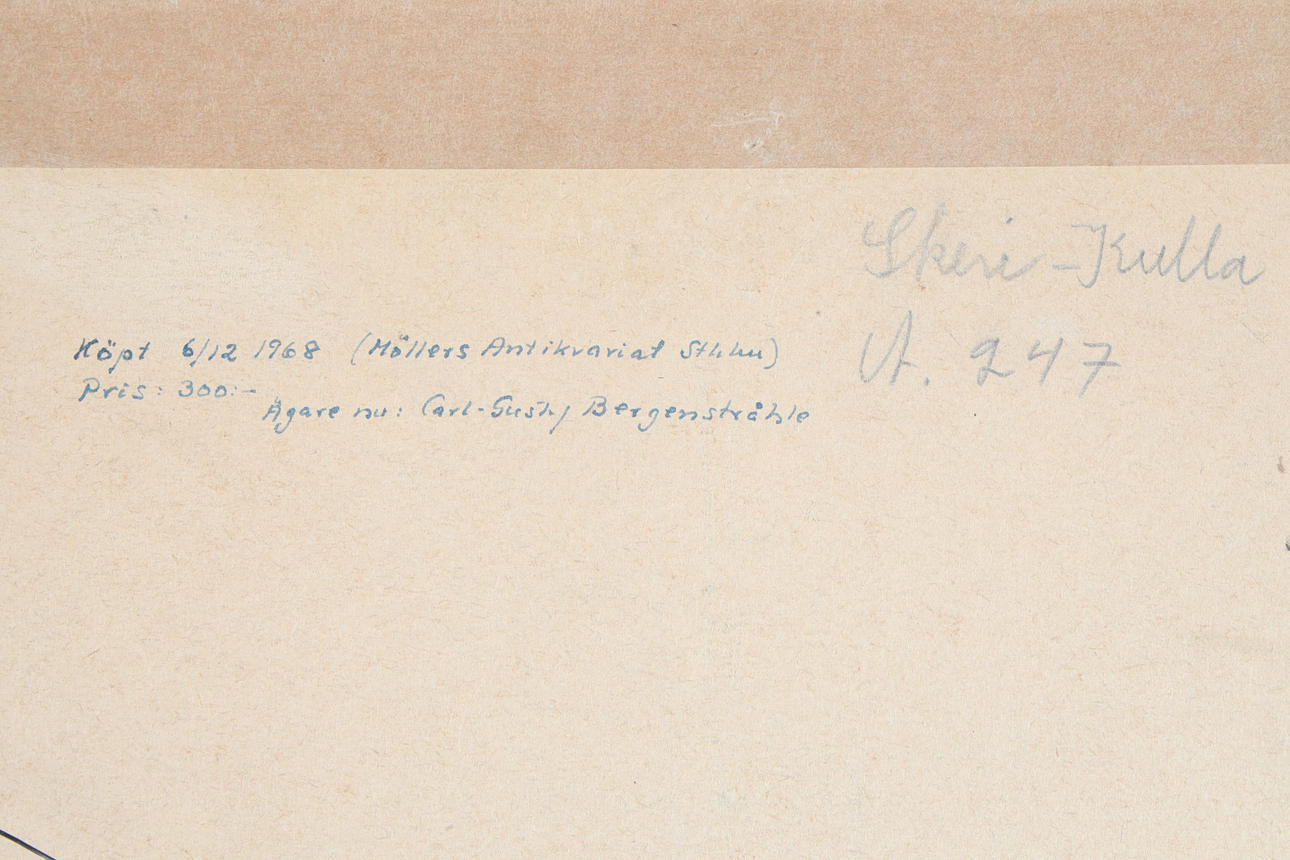 Skeri-Kulla
A. 247
Köpt 6/12 1968 (Möllers Antikvariat Sthlm)
Pris: 300:-
Ägare nu: Carl-Gustaf Bergenstråhle